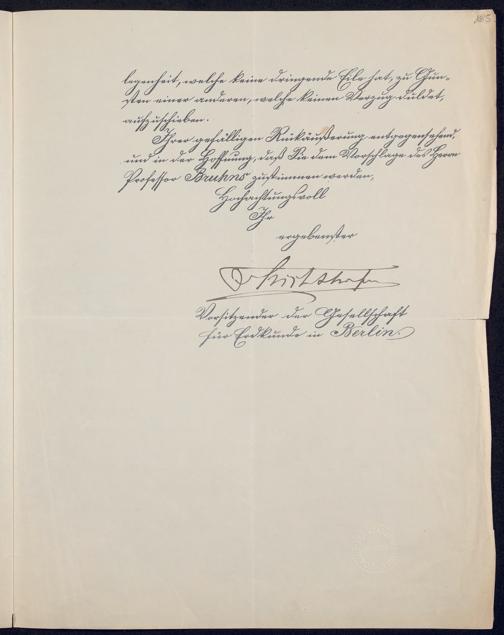 legenheit, welche keine dringende Eile hat, zu Gun-
sten einer anderen, welche keinen Verzug duldet,
aufzuschieben.
Ihrer gefälligen Rückäußerung entgegensehend,
und in der Hoffnung, daß Sie dem Vorschlage des Herrn
Professor Bruhns zustimmen werden,
Hochachtungsvoll
Ihr
ergebenster
Vorsitzender der Gesellschaft
für Erdkunde in Berlin.